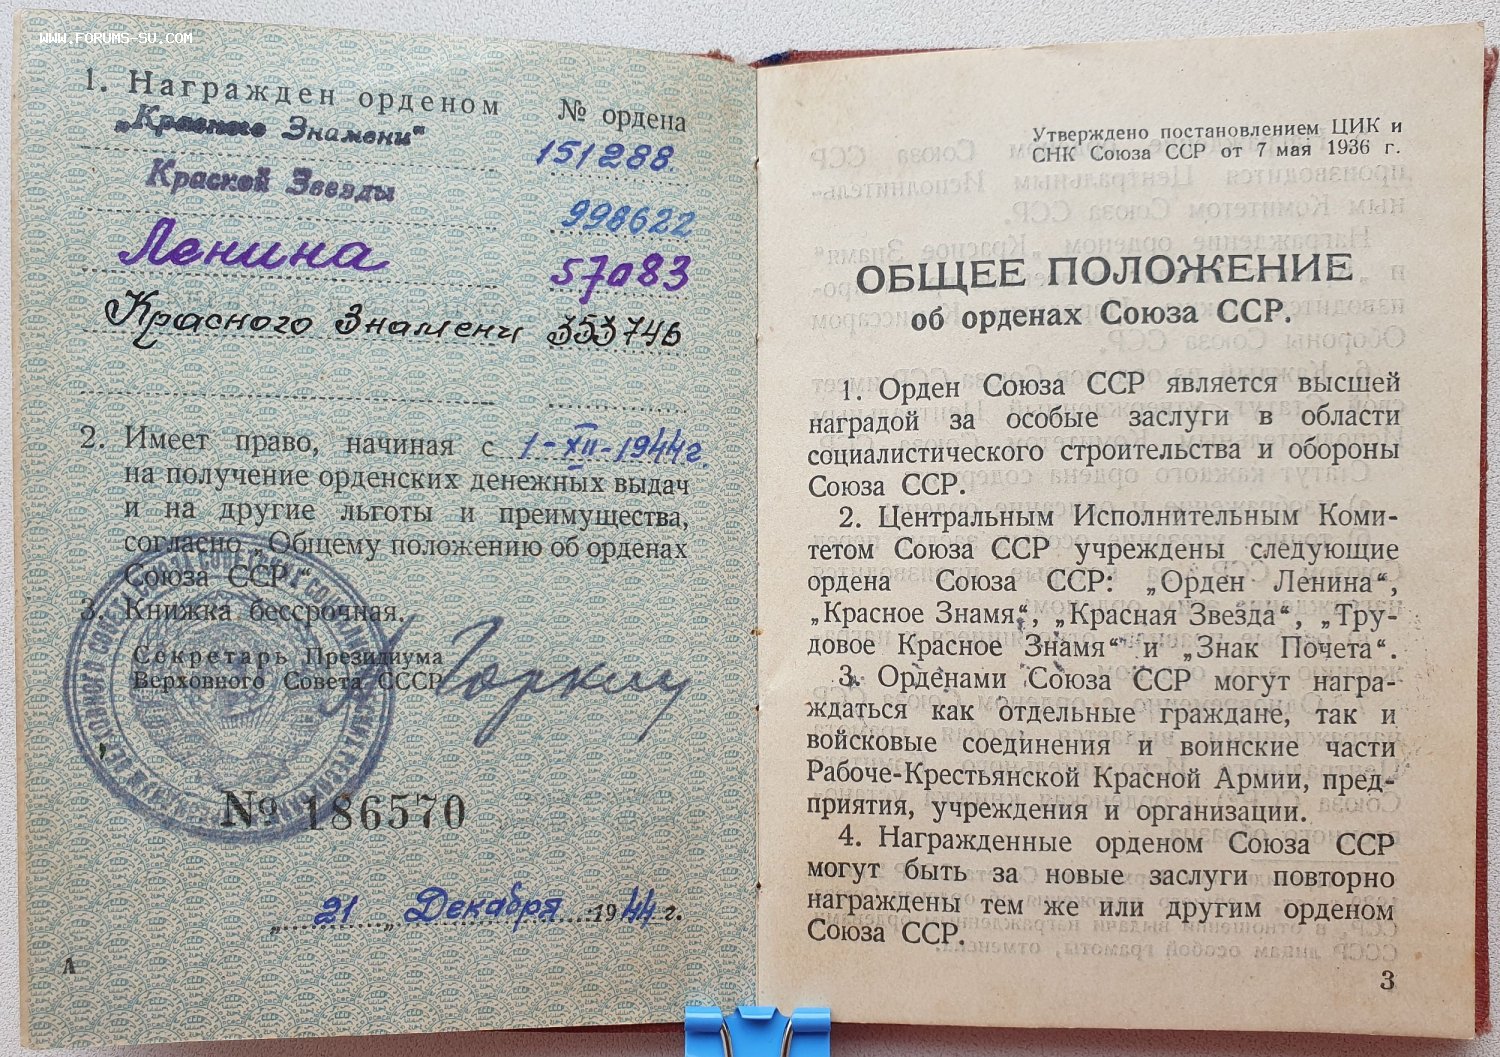 WWW.FORUMS-SU.COM
1. Награжден орденом № ордена
„Красное Знамени“ 151288.
Красной Звезды 996622
Ленина 57083
Красного Знамени 353746
2. Имеет право, начиная с 1-XII-1944г.
на получение орденских денежных выдач
и на другие льготы и преимущества,
согласно „Общему положению об орденах
Союза ССР“
3. Книжка бессрочная.
Секретарь Президиума
Верховного Совета СССР
А Горкин
№ 186570
„21„ Декабря 1944 г.
А
Утверждено постановлением ЦИК и
СНК Союза ССР от 7 мая 1936 г.
ОБЩЕЕ ПОЛОЖЕНИЕ
об орденах Союза ССР.
1. Орден Союза ССР является высшей
наградой за особые заслуги в области
социалистического строительства и обороны
Союза ССР.
2. Центральным Исполнительным Коми-
тетом Союза ССР учреждены следующие
ордена Союза ССР: „Орден Ленина“,
„Красное Знамя“, „Красная Звезда“, „Тру-
довое Красное Знамя“ и „Знак Почета“.
3. Орденами Союза ССР могут награ-
ждаться как отдельные граждане, так и
войсковые соединения и воинские части
Рабоче-Крестьянской Красной Армии, пред-
приятия, учреждения и организации.
4. Награжденные орденом Союза ССР
могут быть за новые заслуги повторно
награждены тем же или другим орденом
Союза ССР.
3